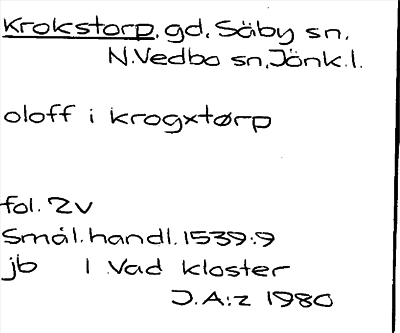 Krokstorp, gd, Säby sn,
N.Vedbo sn, Jönk.l.
oloff i krogxtørp
fol. 2v
Smål.handl. 1539:9
jb 1 Vad kloster
J.A:z 1980